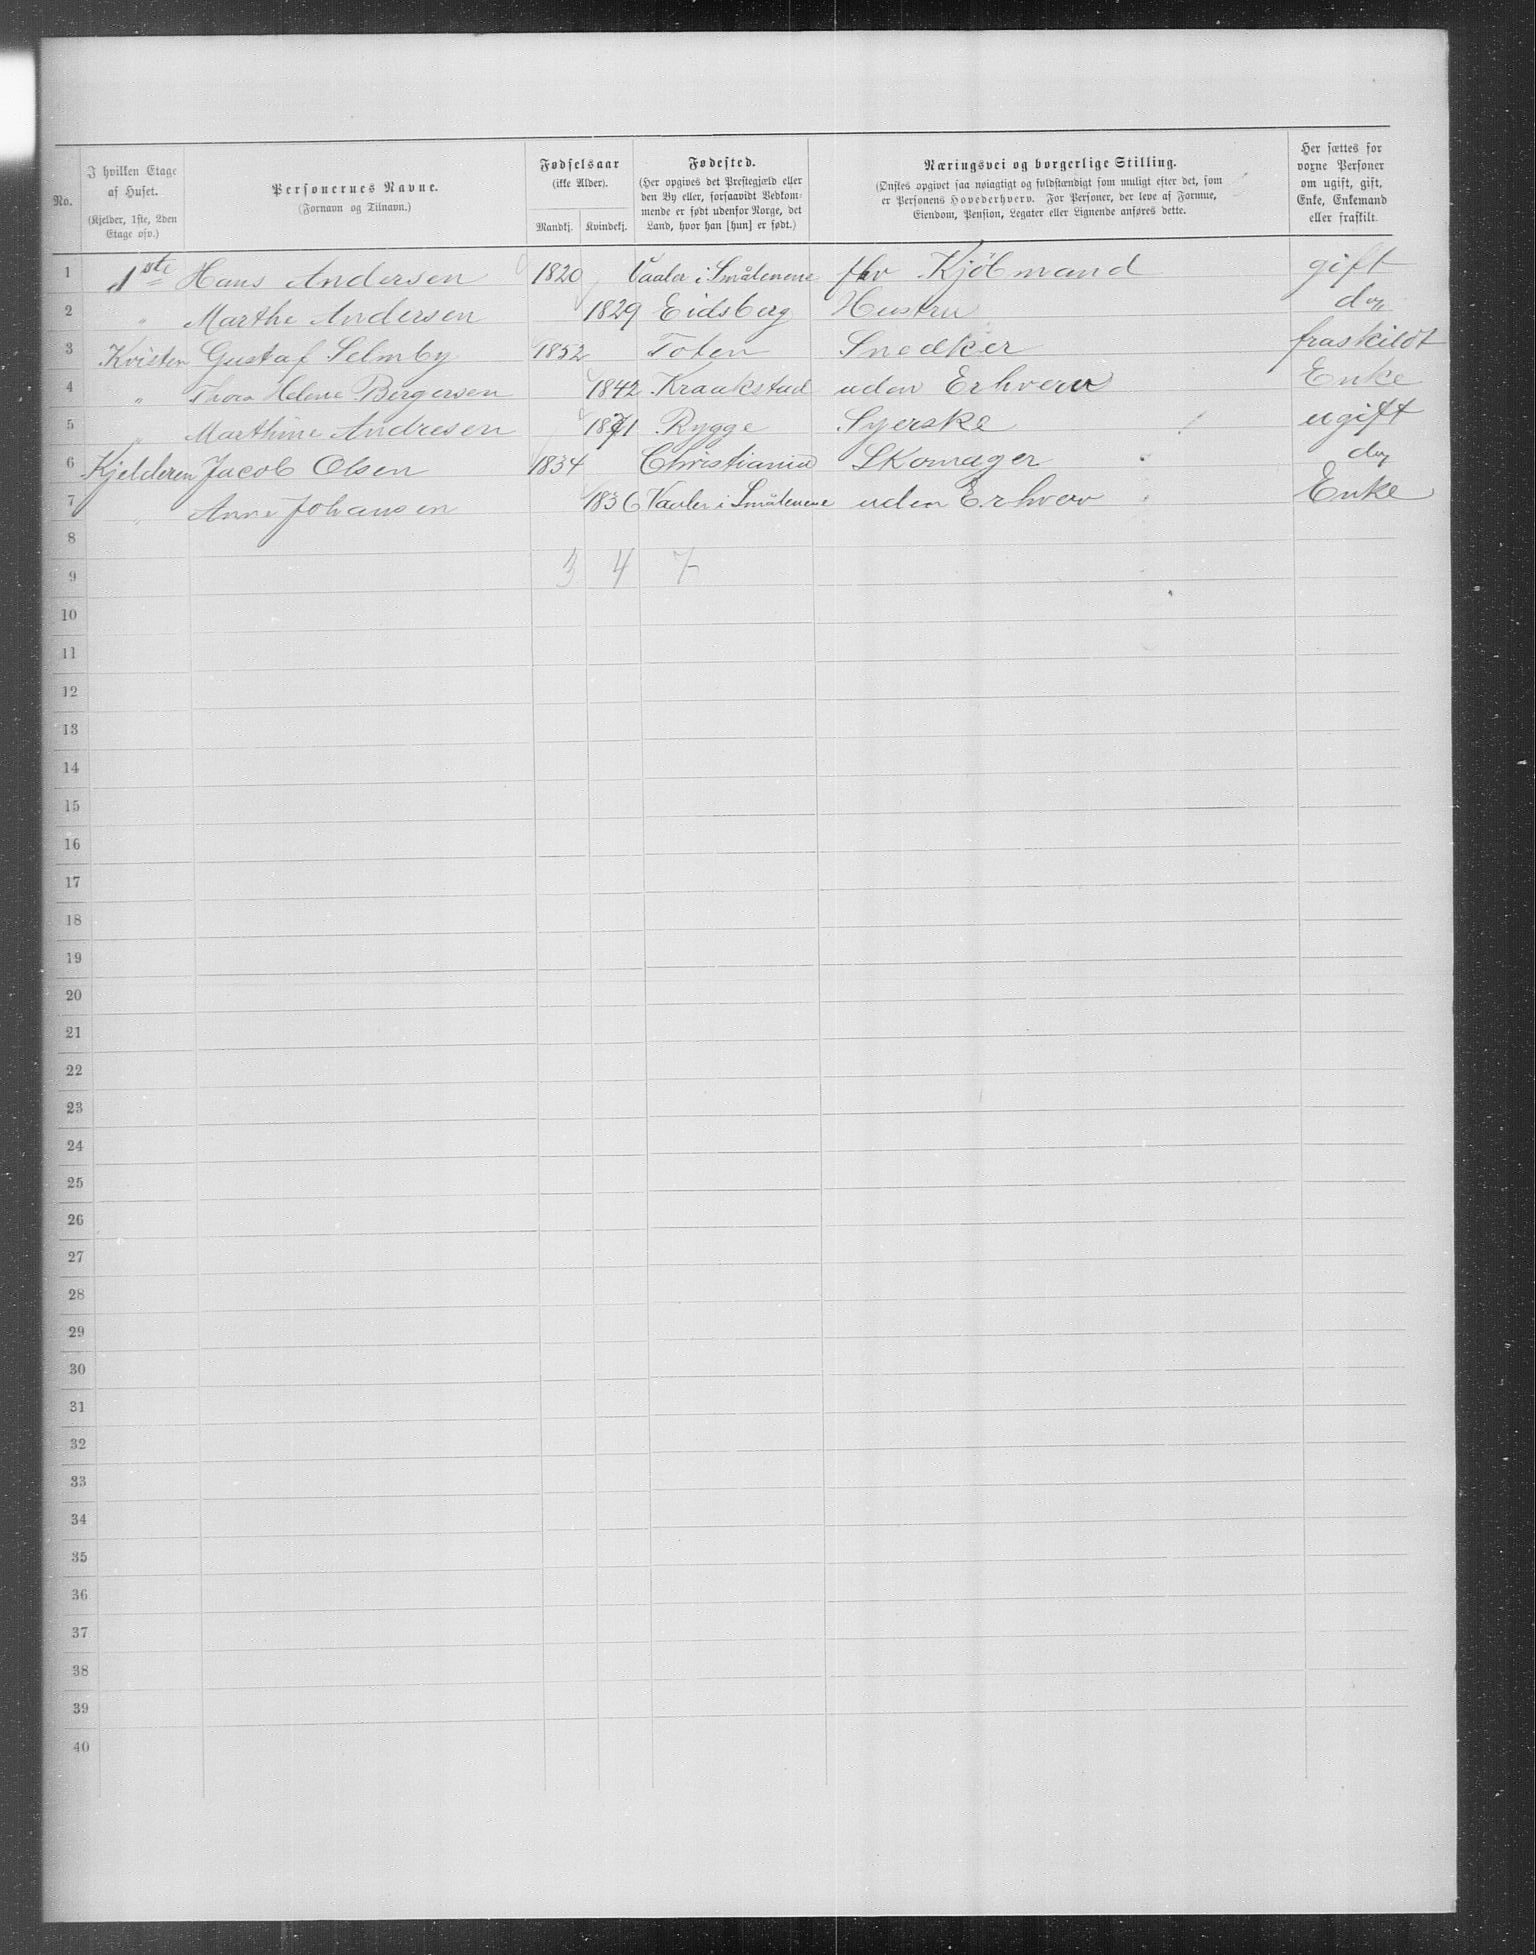 No.
I hvilken Etage af Huset.
(Kjelder, 1ste, 2den Etage osv.)
Personernes Navne.
(Fornavn og Tilnavn.)
Fødselsaar
(ikke Alder).
Mandkj. Kvindekj.
Fødested.
(Her opgives det Prestegjæld eller den By eller, forsaavidt Vedkommende er født udenfor Norge, det Land, hvor han [hun] er født.)
Næringsvei og borgerlige Stilling.
(Ønskes opgivet saa nøiagtigt og fuldstændigt som muligt efter det, som er Personens Hovederhverv. For Personer, der leve af Formue, Eiendom, Pension, Legater eller Lignende anføres dette.
Her sættes for voxne Personer om ugift, gift, Enke, Enkemand eller fraskilt.
1 1ste Hans Andersen 1820 Vaaler i Smålenene fhv Kjöbmand gift
2 " Marthe Andersen 1829 Eidsberg Hustru do
3 Kvisten Gustaf Selmby 1852 Toten Snedker fraskildt
4 " Thora Helene Bergersen 1842 Kraakstad uden Erhverv Enke
5 " Marthine Andresen 1871 Rygge Syerske ugift
6 Kjelderen Jacob Olsen 1834 Christiania Skomager do
7 " Anne Johansen 1836 Vaaler i Smålenene uden Erhverv Enke
8
3 4 7
9
10
11
12
13
14
15
16
17
18
19
20
21
22
23
24
25
26
27
28
29
30
31
32
33
34
35
36
37
38
39
40